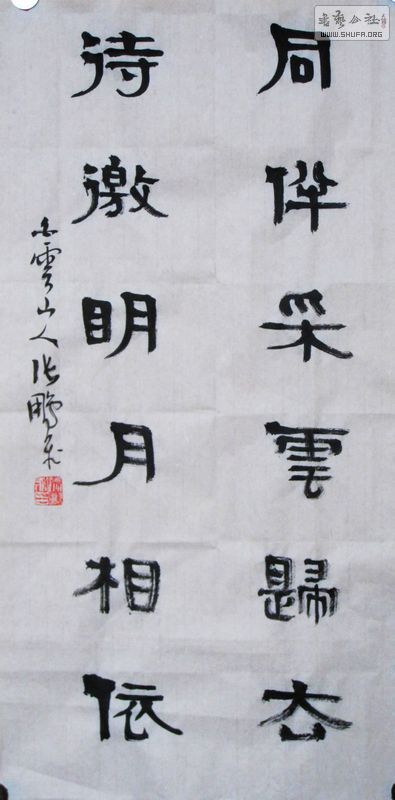 同伴采雲歸去
待邀明月相依
雲山人張鵬飛
書藝公社
WWW.SHUFA.ORG